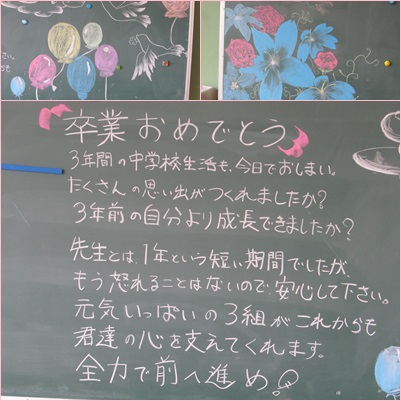 卒業おめでとう
3年間の中学校生活も、今日でおしまい。
たくさんの思い出がつくれましたか?
3年前の自分より成長できましたか?
先生とは、1年という短い期間でしたが、
もう怒れることはないので安心して下さい。
元気いっぱいの3組がこれからも
君達の心を支えてくれます。
全力で前へ進め!